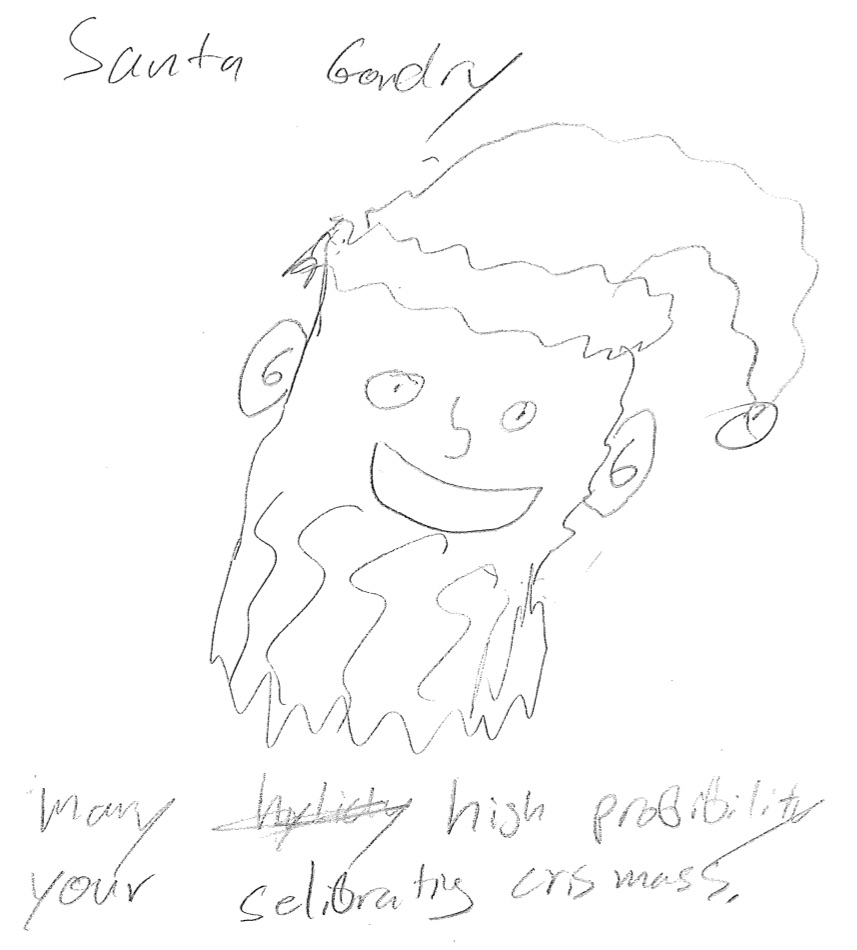 Santa Gondry
many high probibility
your selibratig crismass.